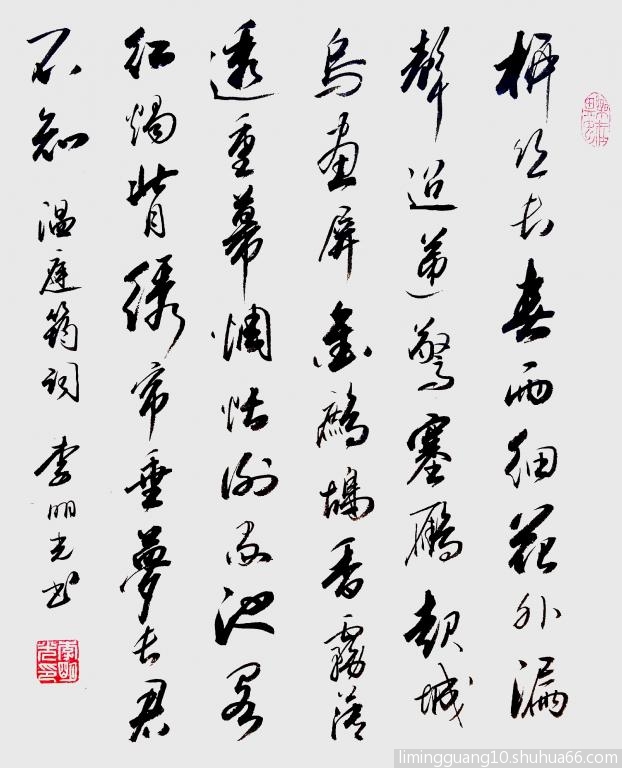 柳丝长春雨细花外漏
聲迢递驚塞雁起城
烏畫屏金鷓鴣香霧薄
透重幕惆怅谢家池阁
红燭背绣帘垂夢长君
不知 温庭筠词 李明光书
limingguang10.shuhua66.com